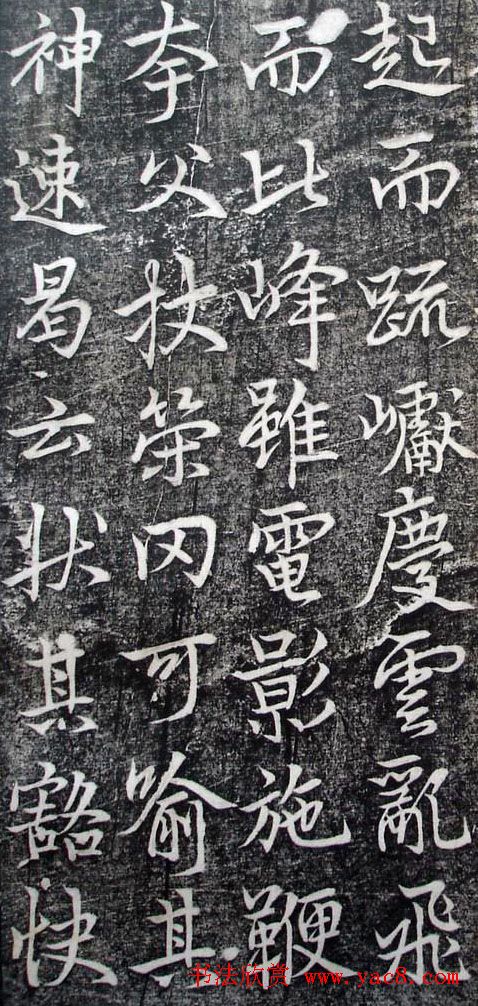 起而疏巘慶雲亂飛
而比峰雖電影施鞭
夸父杖策罔可喻其
神速曷云狀其豁快
书法欣赏 www.yac8.com